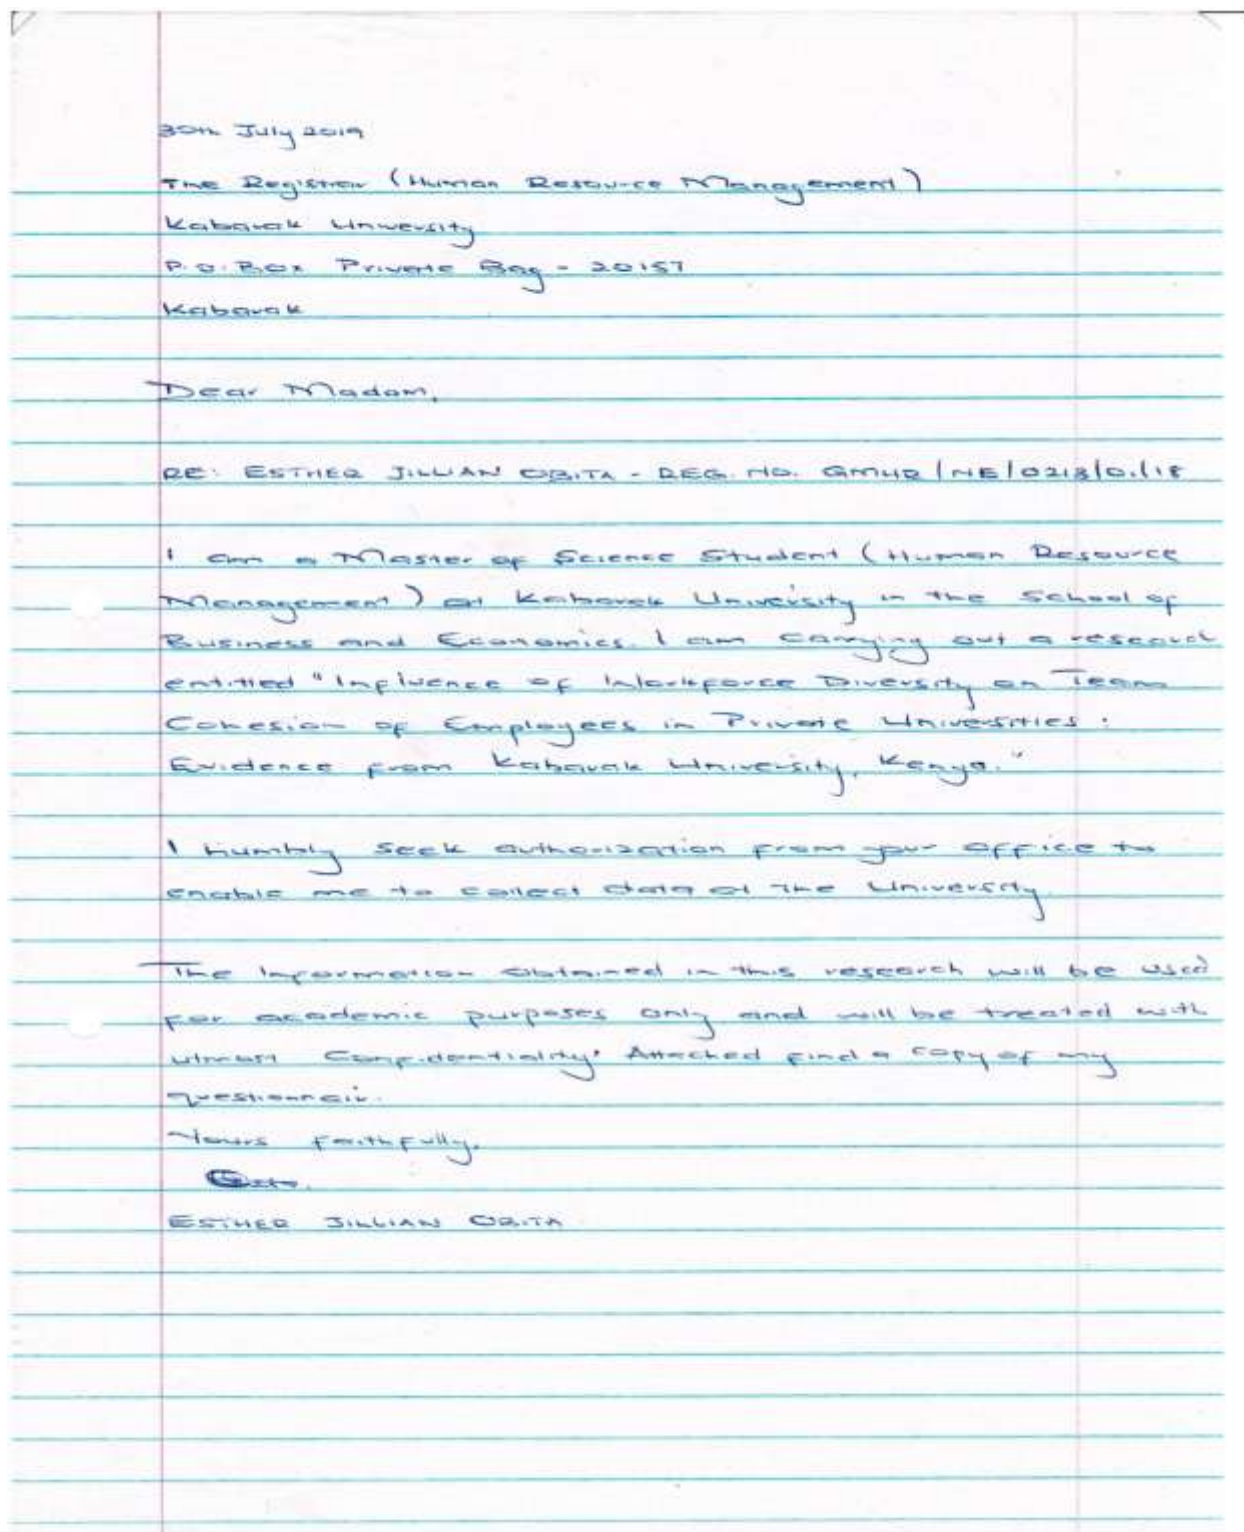 30th July 2019
The Registrar (Human Resource Management)
Kabarak University
P.O. Box Private Bag - 20157
Kabarak
Dear Madam,
RE: ESTHER JILLIAN OBITA - REG. NO. GMHR/NE/0213/01/18
I am a Master of Science Student (Human Resource
Management) at Kabarak University in the School of
Business and Economics. I am carrying out a research
entitled "Influence of Workforce Diversity on Team
Cohesion of Employees in Private Universities:
Evidence from Kabarak University, Kenya."
I humbly seek authorization from your office to
enable me to collect data at the University.
The information obtained in this research will be used
for academic purposes only and will be treated with
utmost Confidentiality. Attached find a copy of my
questionnair.
Yours faithfully,
ESTHER JILLIAN OBITA